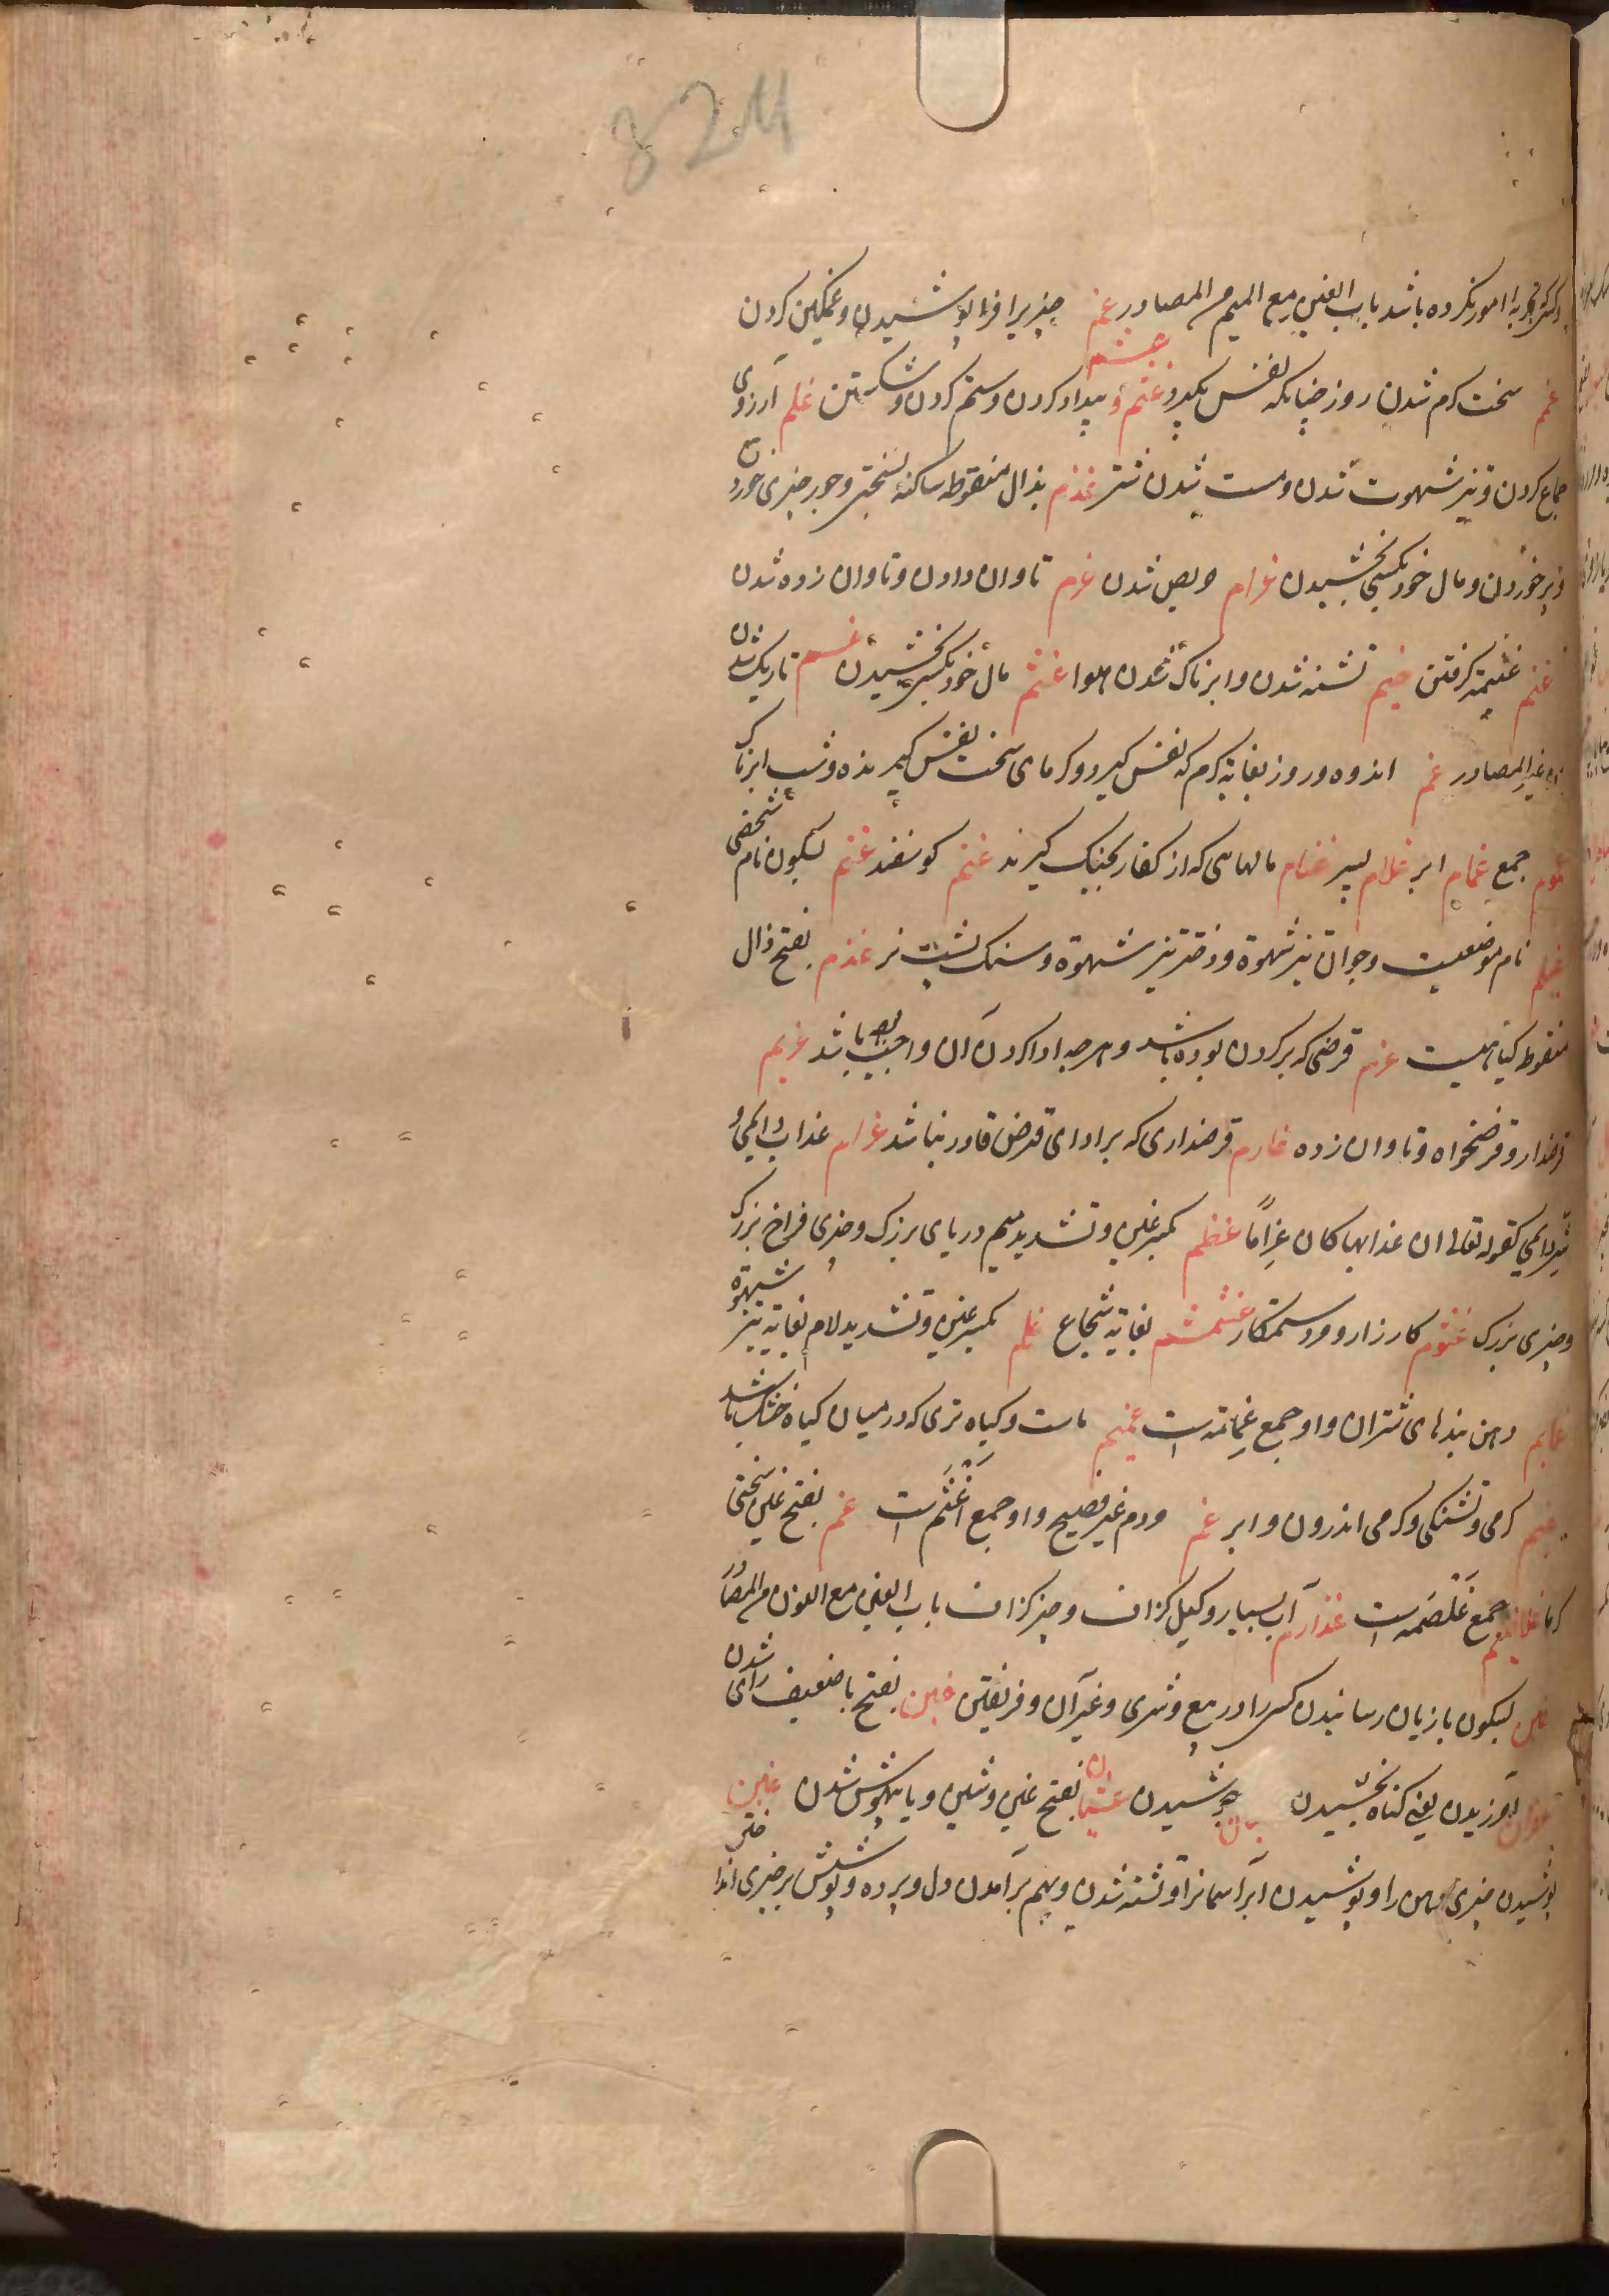 824
و کسی که تجربه امور نکرده باشد باب الغین مع المیم من المصادر غم چیزیرا فرا پوشیدن و غمگین کردن
غم سخت کرم شدن روز چنانکه نفس بگیرد و غتم غشم بیداد کردن و ستم کردن و شکستن غلم آرزوی
جماع کردن و تیز شهوت شدن و مست شدن شتر غذم بذال منقوطه ساکنه بسختی و جور چیزی خورد
و پر خوردن و مال خود بکسی بخشیدن غرام حریص شدن غرم تاوان دادن و تاوان زده شدن
غنم غنیمة کرفتن غیم تشنه شدن و ابرناک شدن هوا غثم مال خود بکسی بخشیدن غسم تاریک شدن
من غیر المصادر غم اندوه و روز بغایة کرم که نفس کیرد و کرمای سخت نفس کیرنده و شب ابرناک
غموم جمع غمام ابر غلام پسر غنام مالهایی که از کفار بجنک کیرند غنم کوسفند غنم بسکون نام شخصی
غیلم نام موضعیست و جوان تیز شهوة و دختر تیز شهوة و سنک پشت نر غذم بفتح ذال
منقوط کیاهیست غرم قرضی که بر کردن بوده باشد و هرچه ادا کردن آن واجب باشد غریم
قرضدار و قرضخواه و تاوان زده غارم قرضداری که بر ادای قرض قادر نباشد غرام عذاب دایمی و
شر دایمی کقوله تعالی ان عذابها کان غراماً غطم بکسر غین و تشدید میم دریای بزرک و چیزی فراخ بزرک
و چیزی بزرک غشوم کارزار و مرد ستمکار غشمشم بغایة شجاع غلم بکسر غین و تشدید لام بغایة تیز شهوة
غمایم دهن بندهای شتران و او جمع غمامة است غمیم ماست و کیاه تری که در میان کیاه خشک باشد
غیم کرمی و تشنکی و کرمی اندرون و ابر غتم مردم غیر فصیح و او جمع اغتم است غم بفتح غین سختی
کرما غلاصم جمع غلصمه است غذارم آب بسیار و کیل کزاف و چیز کزاف باب الغین مع النون من المصادر
غبن بسکون با زیان رسانیدن کسی را در بیع و شری و غیر آن و فریفتن غبن بفتح با ضعیف رای شدن
غفران آمرزیدن یعنی کناه بخشیدن جوشیدن غشیان بفتح غین و شین و یا بیهوش شدن غین
پوشیدن چیزی را و پوشیدن ابر آسمانرا و تشنه شدن و بهم برآمدن دل و پرده و پوشش بر چیزی انداختن